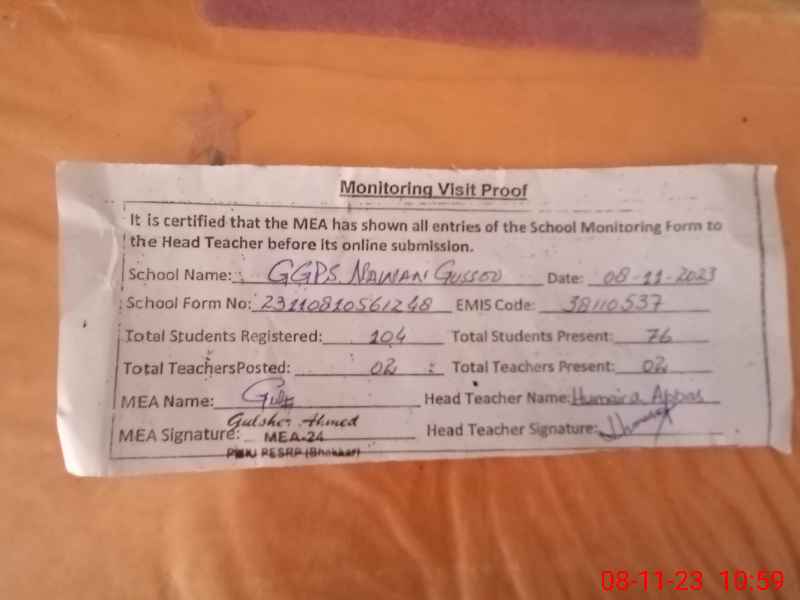 Monitoring Visit Proof
It is certified that the MEA has shown all entries of the School Monitoring Form to
the Head Teacher before its online submission.
School Name: GGPS NAWAN GUSSOO Date: 08-11-2023
School Form No: 23110810561248 EMIS Code: 38110537
Total Students Registered: 104 Total Students Present: 76
Total TeachersPosted: 02 Total Teachers Present: 02
MEA Name: Head Teacher Name: Humaira Abbas
Gulsher Ahmed
MEA Signature: MEA-24 Head Teacher Signature:
PESRP (Bhakkar)
08-11-23 10:59